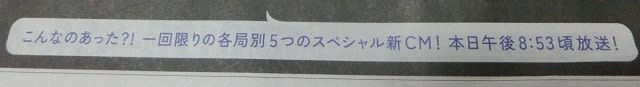 こんなのあった?! 一回限りの各局別5つのスペシャル新CM! 本日午後8:53頃放送!